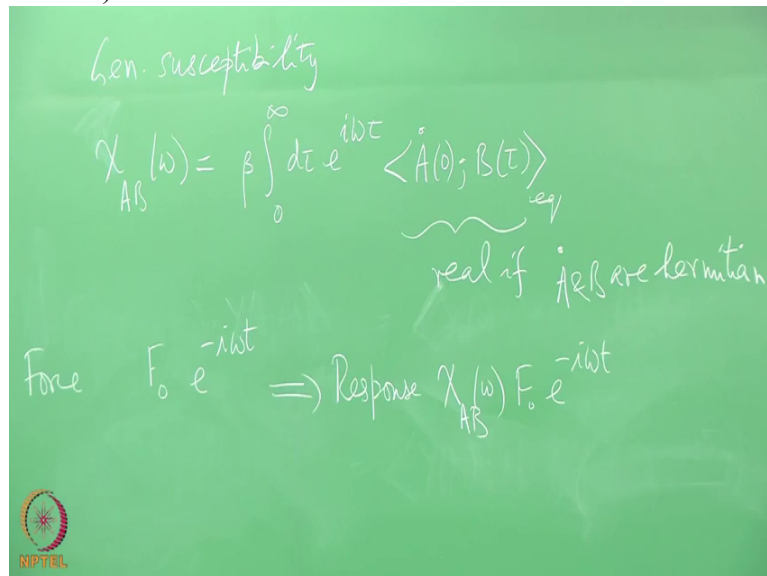 Gen. susceptibility
χ_AB(ω) = β ∫_0^∞ dτ e^{iωτ} <Ȧ(0); B(τ)>_eq
real if Ȧ & B are hermitian
Force F_0 e^{-iωt} ⟹ Response χ_AB(ω) F_0 e^{-iωt}
NPTEL